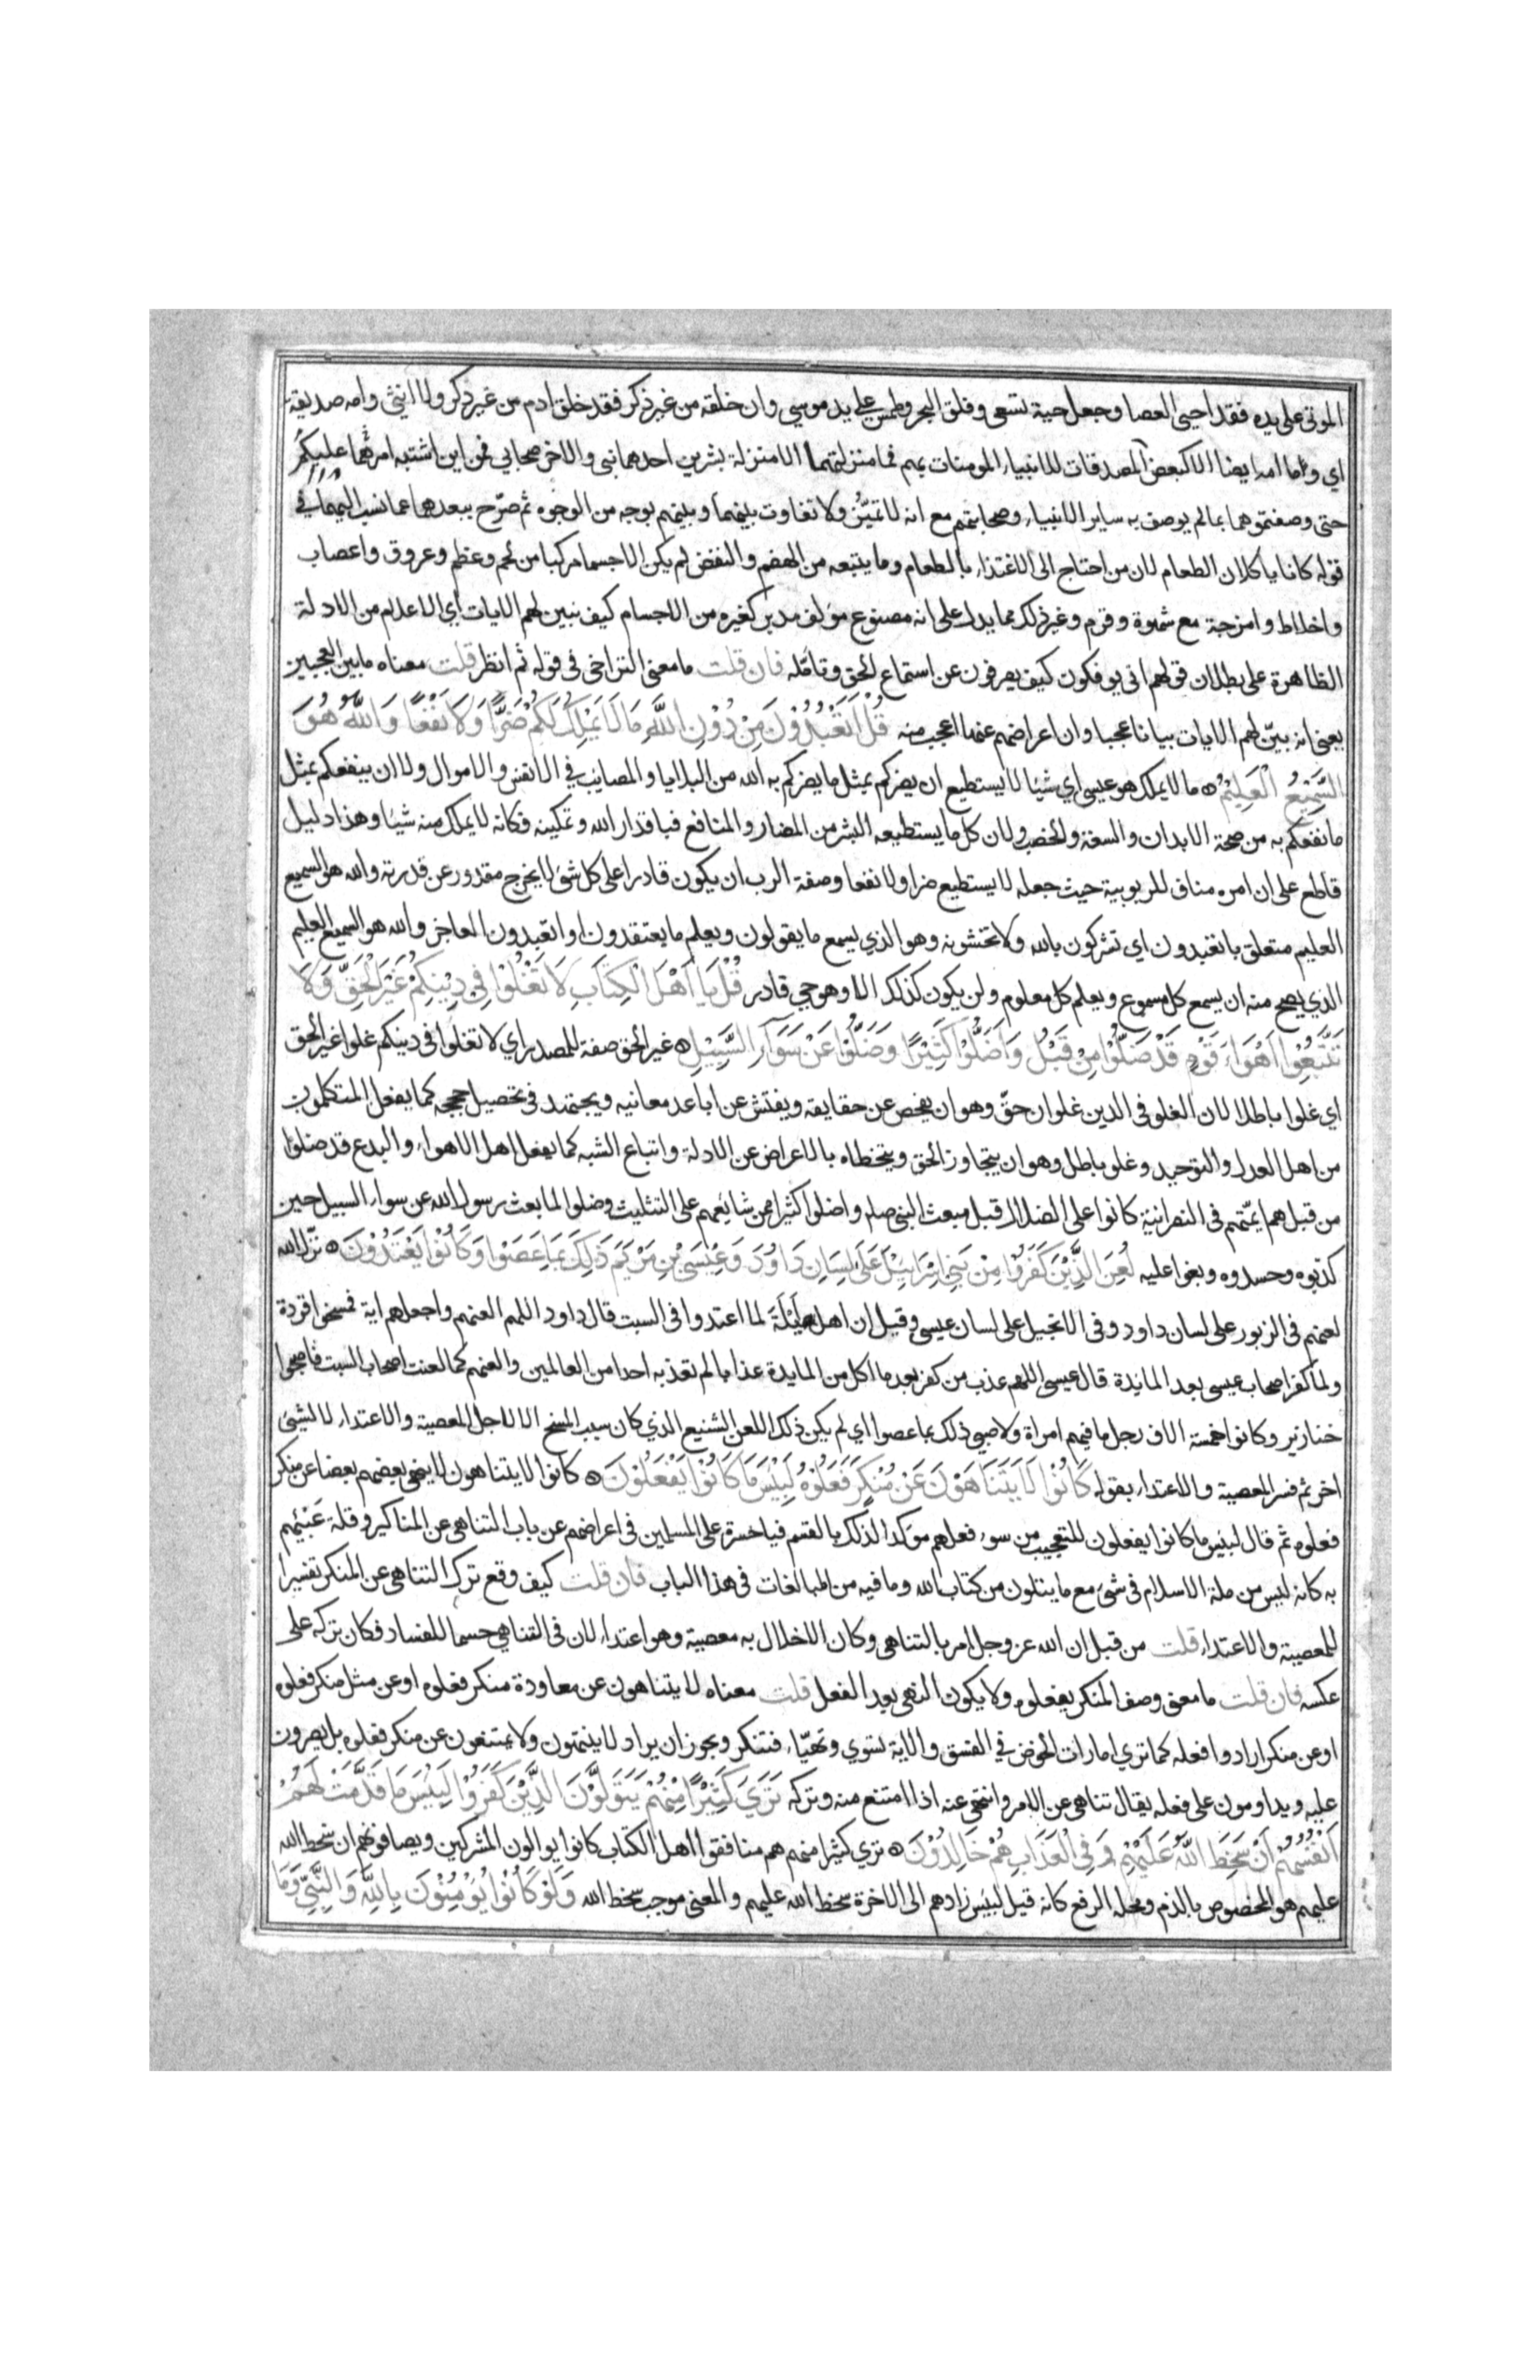 الموتى على يده فقد احيى العصا وجعل حية تسعى وفلق البحر وطمس على يد موسى وان خلقه من غير ذكر فقد خلق ادم من غير ذكر ولا انثى وامه صديقة
اي وما امه ايضا الا كبعض المصدقات للانبياء المومنات بهم فما منزلتهما الا منزلة بشرين احدهما نبي والاخر صحابي فمن اين اشتبه امرهما عليكم
حتى وصفتموهما بمالم يوصف به ساير الانبياء وصحابتهم مع انه لا تميّز ولا تفاوت بينهما وبينهم بوجه من الوجوه ثم صرّح ببعدهما عما نسب اليهما في
قوله كانا ياكلان الطعام لان من احتاج الى الاغتذاء بالطعام وما يتبعه من الهضم والنفض لم يكن الا جسما مركبا من لحم وعظم وعروق واعصاب
واخلاط وامزجة مع شهوة وقرم وغير ذلك مما يدل على انه مصنوع مؤلف مدبر كغيره من الاجسام كيف نبين لهم الايات اي الاعلام من الادلة
الظاهرة على بطلان قولهم انى يوفكون كيف يصرفون عن استماع الحق وتامّله فان قلت ما معنى التراخى فى قوله ثم انظر قلت معناه ما بين العجبين
يعنى انه بيّن لهم الايات بيانا عجبا وان اعراضهم عنها اعجب منه قُلْ اَتَعْبُدُوْنَ مِنْ دُوْنِ اللّٰهِ مَا لَا يَمْلِكُ لَكُمْ ضَرًّا وَلَا نَفْعًا وَاللّٰهُ هُوَ
السَّمِيْعُ الْعَلِيْمُ ه ما لا يملك هو عيسى اي شيئا لا يستطيع ان يضركم بمثل ما يضركم به الله من البلايا والمصايب في الانفس والاموال ولا ان ينفعكم بمثل
ما نفعكم به من صحة الابدان والسعة والخصب ولان كل ما يستطيعه البشر من المضار والمنافع فباقدار الله وتمكينه فكانه لا يملك منه شيئا وهذا دليل
قاطع على ان امره مناف للربوبية حيث جعله لا يستطيع ضرا ولا نفعا وصفة الرب ان يكون قادرا على كل شئ لا يخرج مقدور عن قدرته والله هو السميع
العليم متعلق باتعبدون اى تشركون بالله ولا تخشونه وهو الذي يسمع ما يقولون ويعلم ما يعتقدون او اتعبدون العاجز والله هو السميع العليم
الذي يصح منه ان يسمع كل مسموع ويعلم كل معلوم ولن يكون كذلك الا وهو حي قادر قُلْ يَا اَهْلَ الْكِتَابِ لَا تَغْلُوْا فِي دِيْنِكُمْ غَيْرَ الْحَقِّ وَلَا
تَتَّبِعُوْا اَهْوَاءَ قَوْمٍ قَدْ ضَلُّوْا مِنْ قَبْلُ وَاَضَلُّوْا كَثِيْرًا وَضَلُّوْا عَنْ سَوَآءِ السَّبِيْلِ ه غير الحق صفة للمصدر اي لا تغلوا فى دينكم غلوا غير الحق
اي غلوا باطلا لان الغلو فى الدين غلوان حقّ وهو ان يفحص عن حقايقه ويفتش عن اباعد معانيه ويجتهد فى تحصيل حججه كما يفعل المتكلمون
من اهل العدل والتوحيد وغلو باطل وهو ان يتجاوز الحق ويتخطاه بالاعراض عن الادلة واتباع الشبه كما يفعل اهل الاهواء والبدع قد ضلوا
من قبل هم ايمّتهم فى النصرانية كانوا على الضلال قبل مبعث النبى صلم واضلوا كثيرا ممن شايعهم على التثليث وضلوا لما بعث رسول الله عن سواء السبيل حين
كذبوه وحسدوه وبغوا عليه لُعِنَ الَّذِيْنَ كَفَرُوْا مِنْ بَنِيْ اِسْرَائِيْلَ عَلَى لِسَانِ دَاوُدَ وَعِيْسَى بْنِ مَرْيَمَ ذٰلِكَ بِمَا عَصَوْا وَكَانُوْا يَعْتَدُوْنَ ه نزّل الله
لعنهم فى الزبور على لسان داود وفى الانجيل على لسان عيسى وقيل ان اهل اَيْلَةَ لما اعتدوا فى السبت قال داود اللهم العنهم واجعلهم اية فمسخوا قردة
ولما كفر اصحاب عيسى بعد المائدة قال عيسى اللهم عذب من كفر بعد ما اكل من المايدة عذابا لم تعذبه احدا من العالمين والعنهم كما لعنت اصحاب السبت فاصبحوا
خنازير وكانوا خمسة الاف رجل ما فيهم امراة ولا صبي ذلك بما عصوا اي لم يكن ذلك اللعن الشنيع الذي كان سبب المسخ الا لاجل المعصية والاعتداء لا لشئ
اخر ثم فسر المعصية والاعتداء بقوله كَانُوْا لَا يَتَنَاهَوْنَ عَنْ مُنْكَرٍ فَعَلُوْهُ لَبِئْسَ مَا كَانُوْا يَفْعَلُوْنَ ه كانوا لا يتناهون لا ينهى بعضهم بعضا عن منكر
فعلوه ثم قال لبئس ما كانوا يفعلون للتعجيب من سوء فعلهم مؤكدا لذلك بالقسم فيا حسرة على المسلمين فى اعراضهم عن باب التناهى عن المناكير وقلة عَبْئهم
به كانه ليس من ملة الاسلام فى شئ مع ما يتلون من كتاب الله وما فيه من المبالغات فى هذا الباب فان قلت كيف وقع ترك التناهى عن المنكر تفسيرا
للمعصية والاعتداء قلت من قبل ان الله عز وجل امر بالتناهى وكان الاخلال به معصية وهو اعتداء لان فى التناهي حسما للفساد فكان تركه على
عكسه فان قلت ما معنى وصف المنكر بفعلوه ولا يكون النهى بعد الفعل قلت معناه لا يتناهون عن معاودة منكر فعلوه او عن مثل منكر فعلوه
او عن منكر ارادوا فعله كما ترى امارات الخوض في الفسق والاته تسوي وتهيّاء فتنكر ويجوز ان يراد لا ينتهون ولا يمتنعون عن منكر فعلوه بل يصرون
عليه ويداومون على فعله يقال تناهى عن الامر وانتهى عنه اذا امتنع منه وتركه تَرَىٰ كَثِيْرًا مِنْهُمْ يَتَوَلَّوْنَ الَّذِيْنَ كَفَرُوْا لَبِئْسَ مَا قَدَّمَتْ لَهُمْ
اَنْفُسُهُمْ اَنْ سَخِطَ اللّٰهُ عَلَيْهِمْ وَفِي الْعَذَابِ هُمْ خَالِدُوْنَ ه ترى كثيرا منهم هم منافقوا اهل الكتاب كانوا يوالون المشركين ويصافونهم ان سخط الله
عليهم هو المخصوص بالذم ومحله الرفع كانه قيل لبئس زادهم الى الاخرة سخط الله عليهم والمعنى موجب سخط الله وَلَوْ كَانُوْا يُؤْمِنُوْنَ بِاللّٰهِ وَالنَّبِيِّ وَمَا